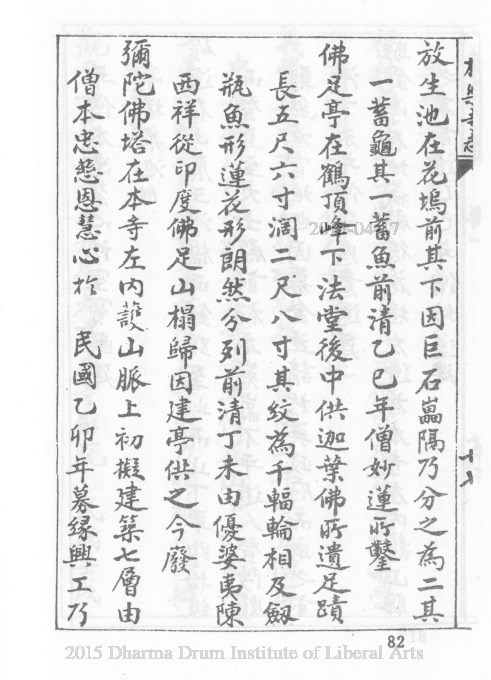 放生池在花塢前其下因巨石嵓隔乃分之為二其
一蓄龜其一蓄魚前清乙巳年僧妙蓮所鑿
佛足亭在鶴頂峰下法堂後中供迦葉佛所遺足蹟
長五尺六寸濶二尺八寸其紋為千輻輪相及劔
瓶魚形蓮花形朗然分列前清丁未由優婆夷陳
西祥從印度佛足山搨歸因建亭供之今廢
彌陀佛塔在本寺左內護山脈上初擬建築七層由
僧本忠慈恩慧心於 民國乙卯年募緣興工乃
82
2015 Dharma Drum Institute of Liberal Arts